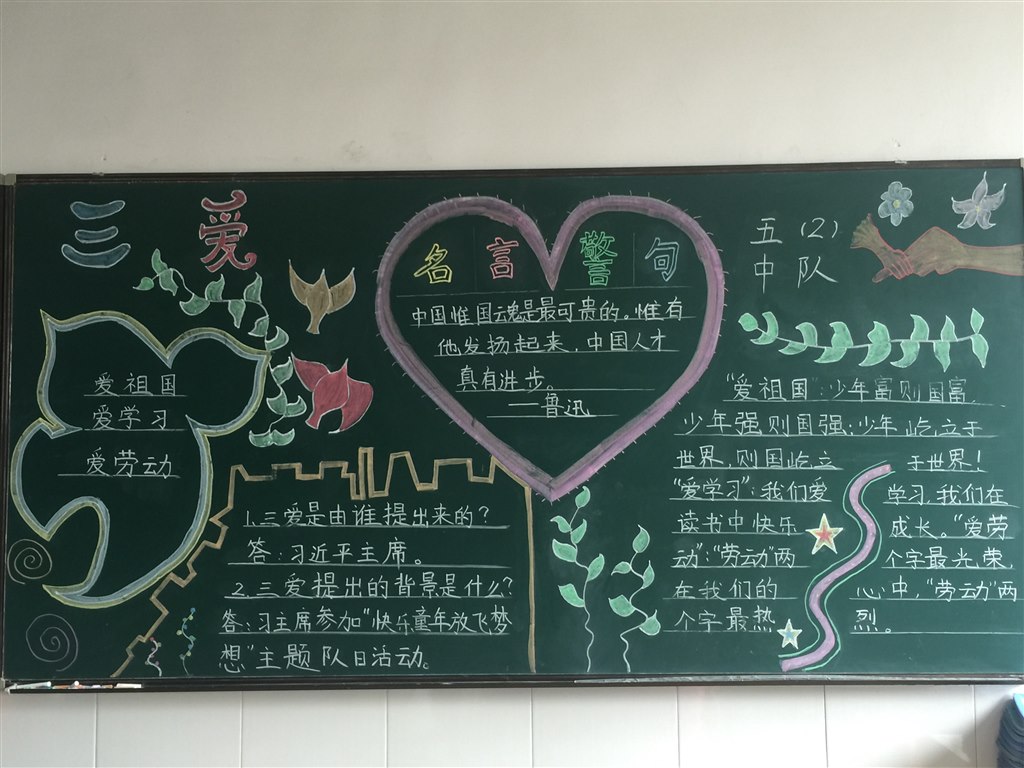 三爱
爱祖国
爱学习
爱劳动
名言警句
中国惟国魂是最可贵的。惟有
他发扬起来，中国人才
真有进步。
——鲁迅
1.三爱是由谁提出来的？
答：习近平主席。
2.三爱提出的背景是什么？
答：习主席参加“快乐童年放飞梦
想”主题队日活动。
五（2）
中队
“爱祖国：少年富则国富，
少年强则国强；少年屹立于
世界，则国屹立于世界！
“爱学习”：我们爱学习，我们在
读书中快乐成长。“爱劳
动”：“劳动”两个字最光荣，
在我们的心中，“劳动”两
个字最热烈。